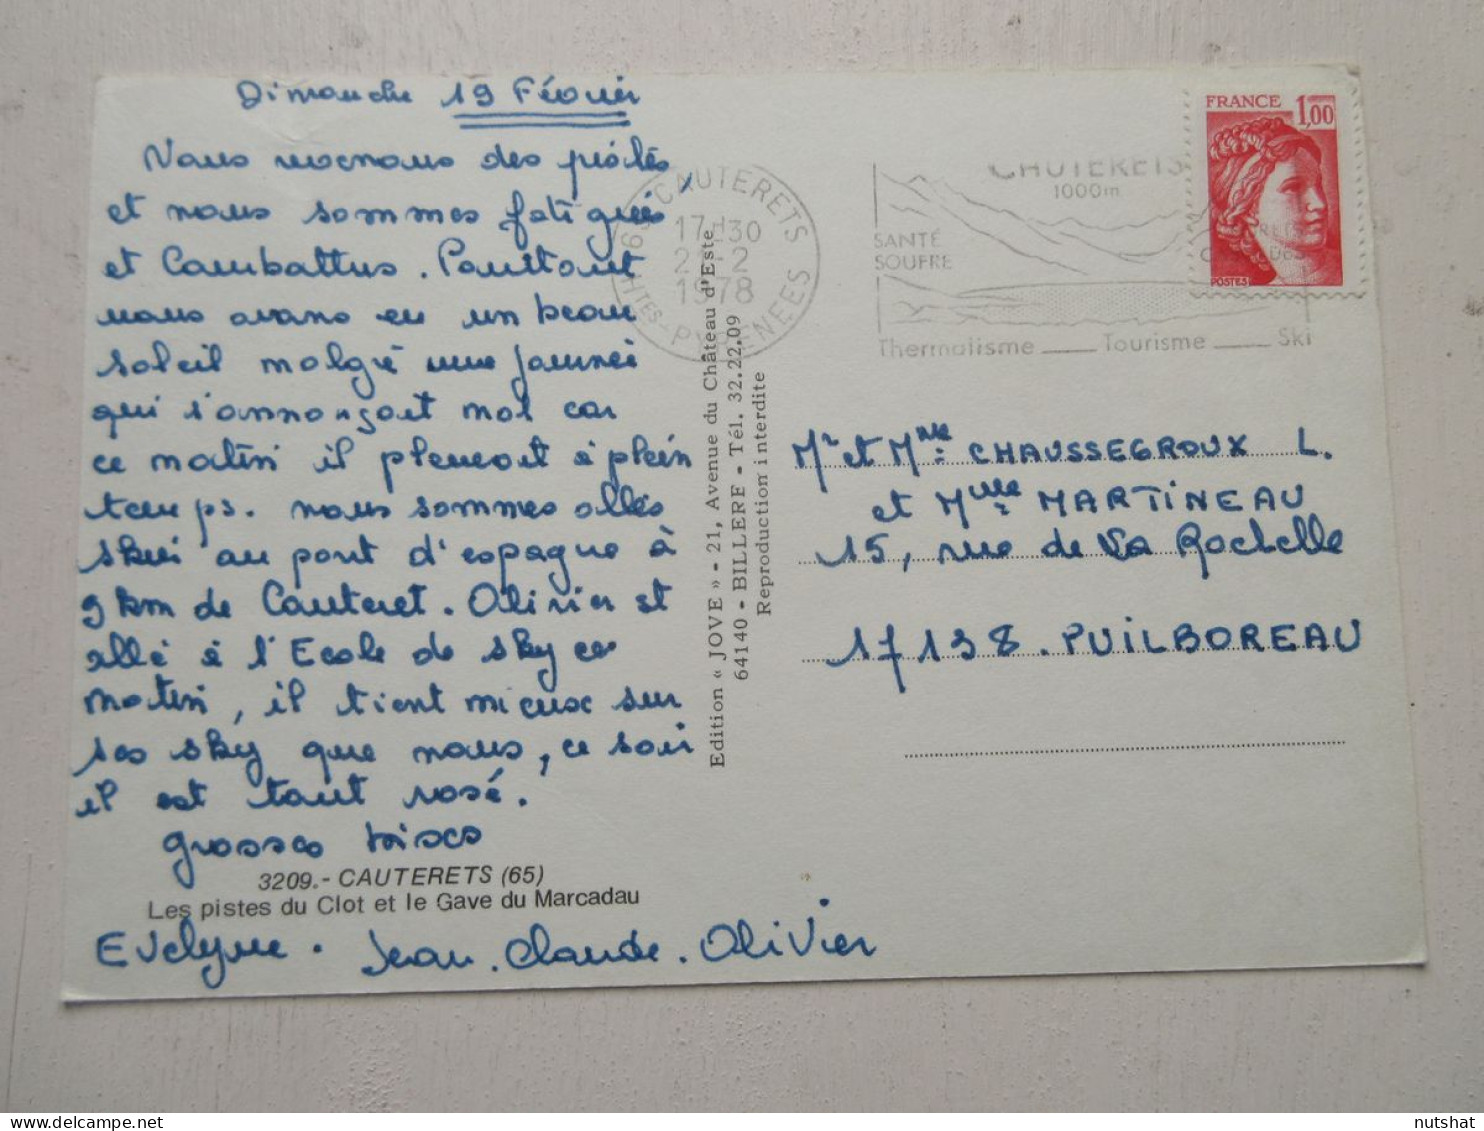 Dimanche 19 Février
Nous revenons des pistes,
et nous sommes fatigués
et Combattus. Pourtant
nous avons eu un beau
soleil malgré une journée
qui s'annonçait mal car
ce matin il pleuvait à plein
temps. nous sommes allés
skier au pont d'espagne à
9 km de Cauteret. Olivier et
allé à l'Ecole de sky ce
matin, il tient mieux sur
ses sky que nous, ce soir
il est tout rosé.
grosses bises
3209.- CAUTERETS (65)
Les pistes du Clot et le Gave du Marcadau
Evelyne. Jean.Claude. Olivier
65 CAUTERETS
17H30
2 -2
1978
HTES-PYRENEES
Edition « JOVE » - 21, Avenue du Château d'Este
64140 - BILLERE - Tél. 32.22.09
Reproduction interdite
CAUTERETS
1000m
SANTÉ
SOUFRE
Thermalisme ___ Tourisme ___ Ski
FRANCE 1,00
POSTES
Mr et Mme CHAUSSEGROUX L.
et Mlle MARTINEAU
15, rue de La Rochelle
17138. PUILBOREAU
nutshat